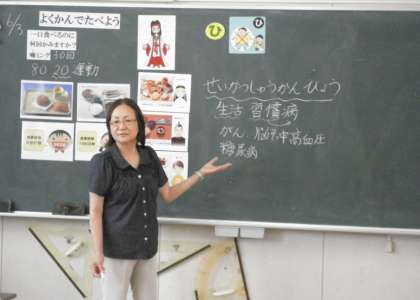 6/3
よくかんでたべよう
一口食べるのに
何回かみますか?
噛ミング30回
80 20運動
ひ
せいかつしゅうかんびょう
生活習慣病
がん、脳卒中高血圧
糖尿病